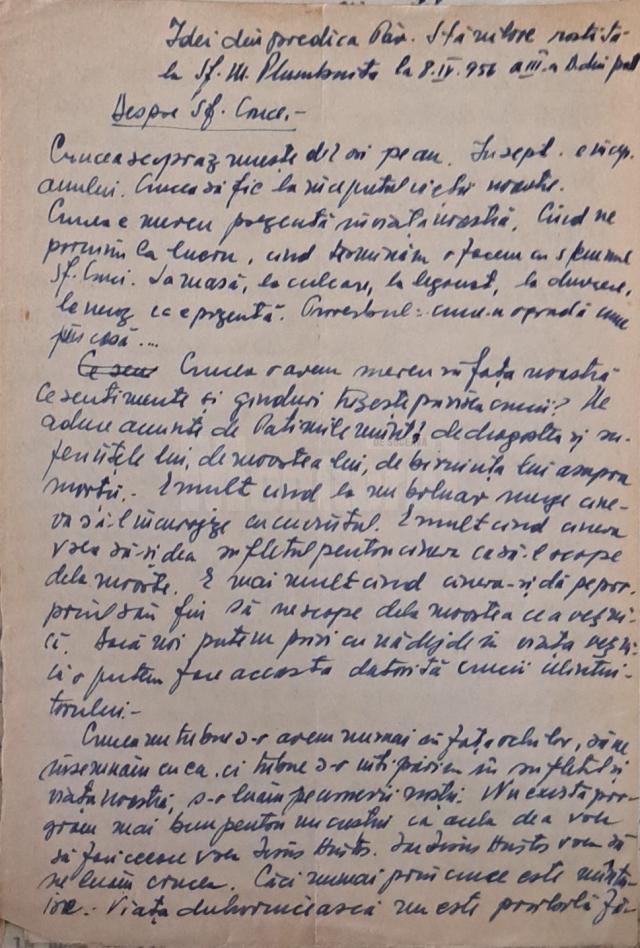 Idei din predica Păr. Stăniloae rostită
la Sf. M. Plumbuita la 8.IV.956 a III-a D. din post
Despre Sf. Cruce.-
Crucea se prăznuește de 2 ori pe an. În sept. e încep.
anului. Crucea să fie la începutul vieții noastre.
Crucea e mereu prezentă în viața noastră. Cînd ne
pornim la lucru, cînd terminăm o facem cu semnul
Sf. Cruci. La masă, la culcare, la
ea e prezentă. Proverbul: cruce-n ogradă cruce
prin casă ...
Crucea o avem mereu în fața noastră
Ce sentimente și gînduri trezește privirea crucii? Ne
aduce aminte de Patimile Mînt. de dragostea și su-
ferințele lui, de moartea lui, de biruința lui asupra
morții.- E mult cînd la un bolnav merge cine-
va să-l încurajeze cu cuvîntul. E mult cînd cineva
vrea să-și dea sufletul pentru cineva ca să-l scape
dela moarte. E mai mult cînd cineva-și dă pe pro-
priul său fiu să ne scape dela moartea cea veșni-
că. Dacă noi putem privi cu nădejde în viața veșni-
că o putem face aceasta datorită crucii Mîntui-
torului.-
Crucea nu trebue s-o avem numai în fața ochilor, să ne
însemnăm cu ea, ci trebue s-o întipărim în sufletul și
viața noastră, s-o luăm pe umerii noștri. Nu există pro-
gram mai bun pentru un creștin ca acela de a vrea
să facă ceea ce vrea Iisus Hristos. Iar Iisus Hristos vrea să
ne luăm crucea. Căci numai prin cruce este mîntu-
ire. Viața duhovnicească nu este posibilă fă-